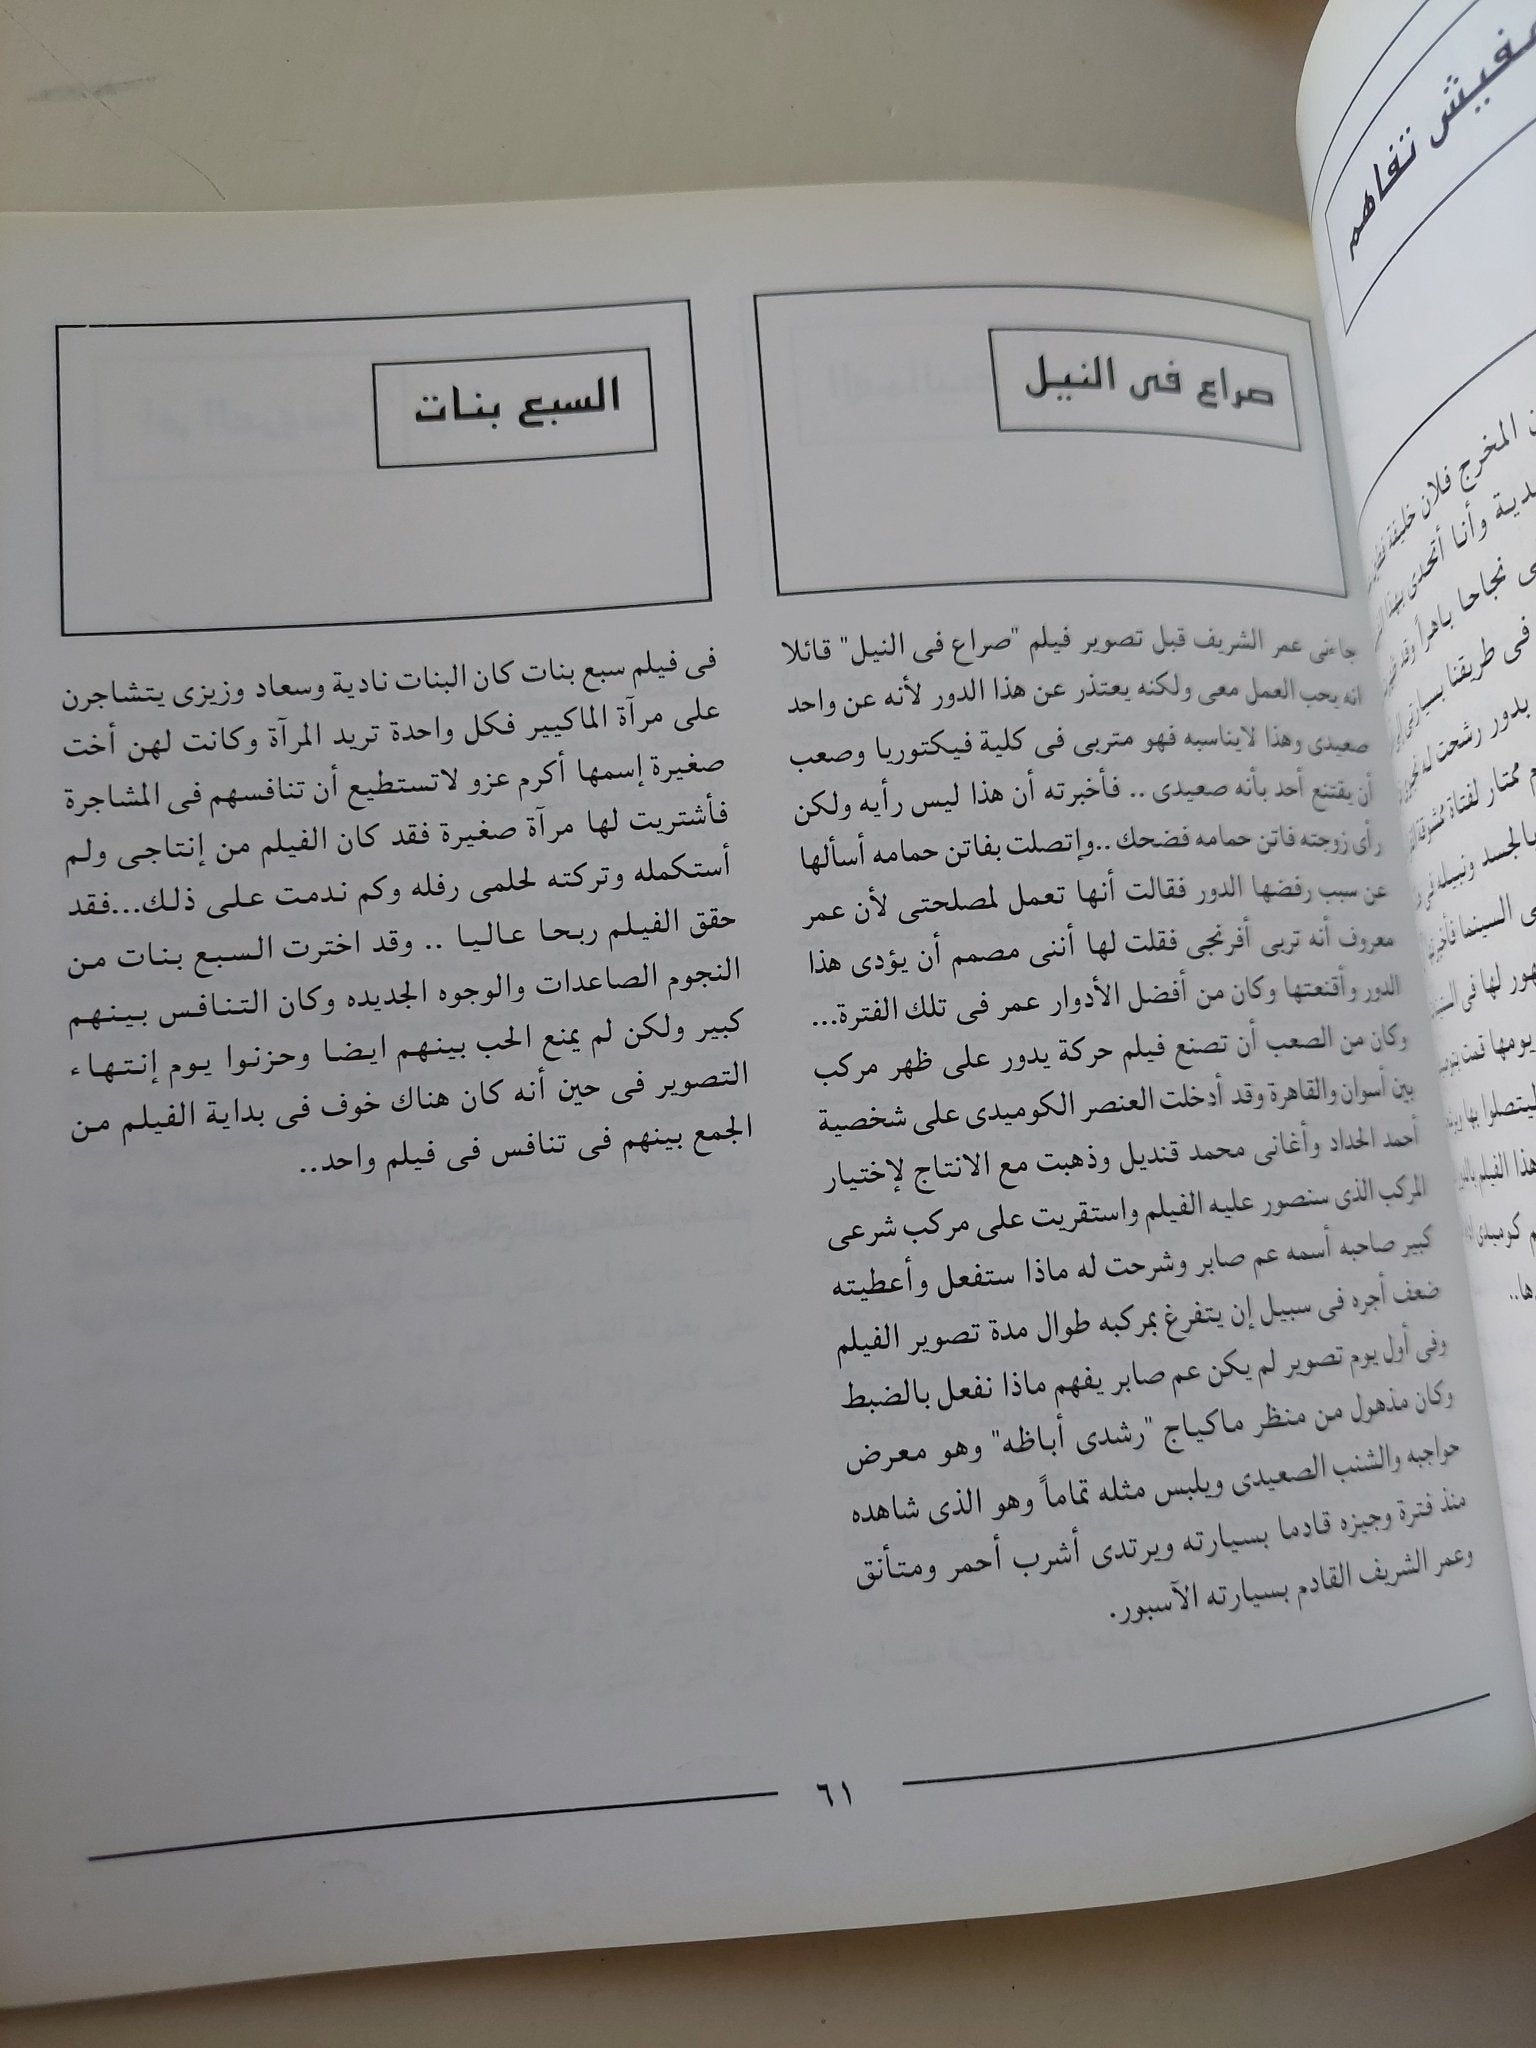 مفيش تفاهم
صراع فى النيل
جاءنى عمر الشريف قبل تصوير فيلم "صراع فى النيل" قائلا
انه يحب العمل معى ولكنه يعتذر عن هذا الدور لأنه عن واحد
صعيدى وهذا لايناسبه فهو متربى فى كلية فيكتوريا وصعب
أن يقتنع أحد بأنه صعيدى .. فأخبرته أن هذا ليس رأيه ولكن
رأى زوجته فاتن حمامه فضحك ..وإتصلت بفاتن حمامه أسألها
عن سبب رفضها الدور فقالت أنها تعمل لمصلحتى لأن عمر
معروف أنه تربى أفرنجى فقلت لها أننى مصمم أن يؤدى هذا
الدور وأقنعتها وكان من أفضل الأدوار عمر فى تلك الفترة...
وكان من الصعب أن تصنع فيلم حركة يدور على ظهر مركب
بين أسوان والقاهرة وقد أدخلت العنصر الكوميدى على شخصية
أحمد الحداد وأغانى محمد قنديل وذهبت مع الانتاج لإختيار
المركب الذى سنصور عليه الفيلم واستقريت على مركب شرعى
كبير صاحبه أسمه عم صابر وشرحت له ماذا ستفعل وأعطيته
ضعف أجره فى سبيل إن يتفرغ بمركبه طوال مدة تصوير الفيلم
وفى أول يوم تصوير لم يكن عم صابر يفهم ماذا نفعل بالضبط
وكان مذهول من منظر ماكياج "رشدى أباظه" وهو معرض
حواجبه والشنب الصعيدى ويلبس مثله تماماً وهو الذى شاهده
منذ فترة وجيزه قادما بسيارته ويرتدى أشرب أحمر ومتأنق
وعمر الشريف القادم بسيارته الآسبور.
السبع بنات
فى فيلم سبع بنات كان البنات نادية وسعاد وزيزى يتشاجرن
على مرآة الماكيير فكل واحدة تريد المرآة وكانت لهن أخت
صغيرة إسمها أكرم عزو لاتستطيع أن تنافسهم فى المشاجرة
فأشتريت لها مرآة صغيرة فقد كان الفيلم من إنتاجى ولم
أستكمله وتركته لحلمى رفله وكم ندمت على ذلك...فقد
حقق الفيلم ربحا عاليا .. وقد اخترت السبع بنات من
النجوم الصاعدات والوجوه الجديده وكان التنافس بينهم
كبير ولكن لم يمنع الحب بينهم ايضا وحزنوا يوم إنتهاء
التصوير فى حين أنه كان هناك خوف فى بداية الفيلم من
الجمع بينهم فى تنافس فى فيلم واحد..
٦١
المخرج فلان خليفة
وأنا أتحدى بهذا
نجاحا باهراً وقد
فى طريقنا بسيارتى
بدور رشحت له
ممتاز لفتاة
بالجسد ونبيله فى
السينما
لها فى
يومها قمت
ليتصلوا بها
هذا الفيلم
كوميدى